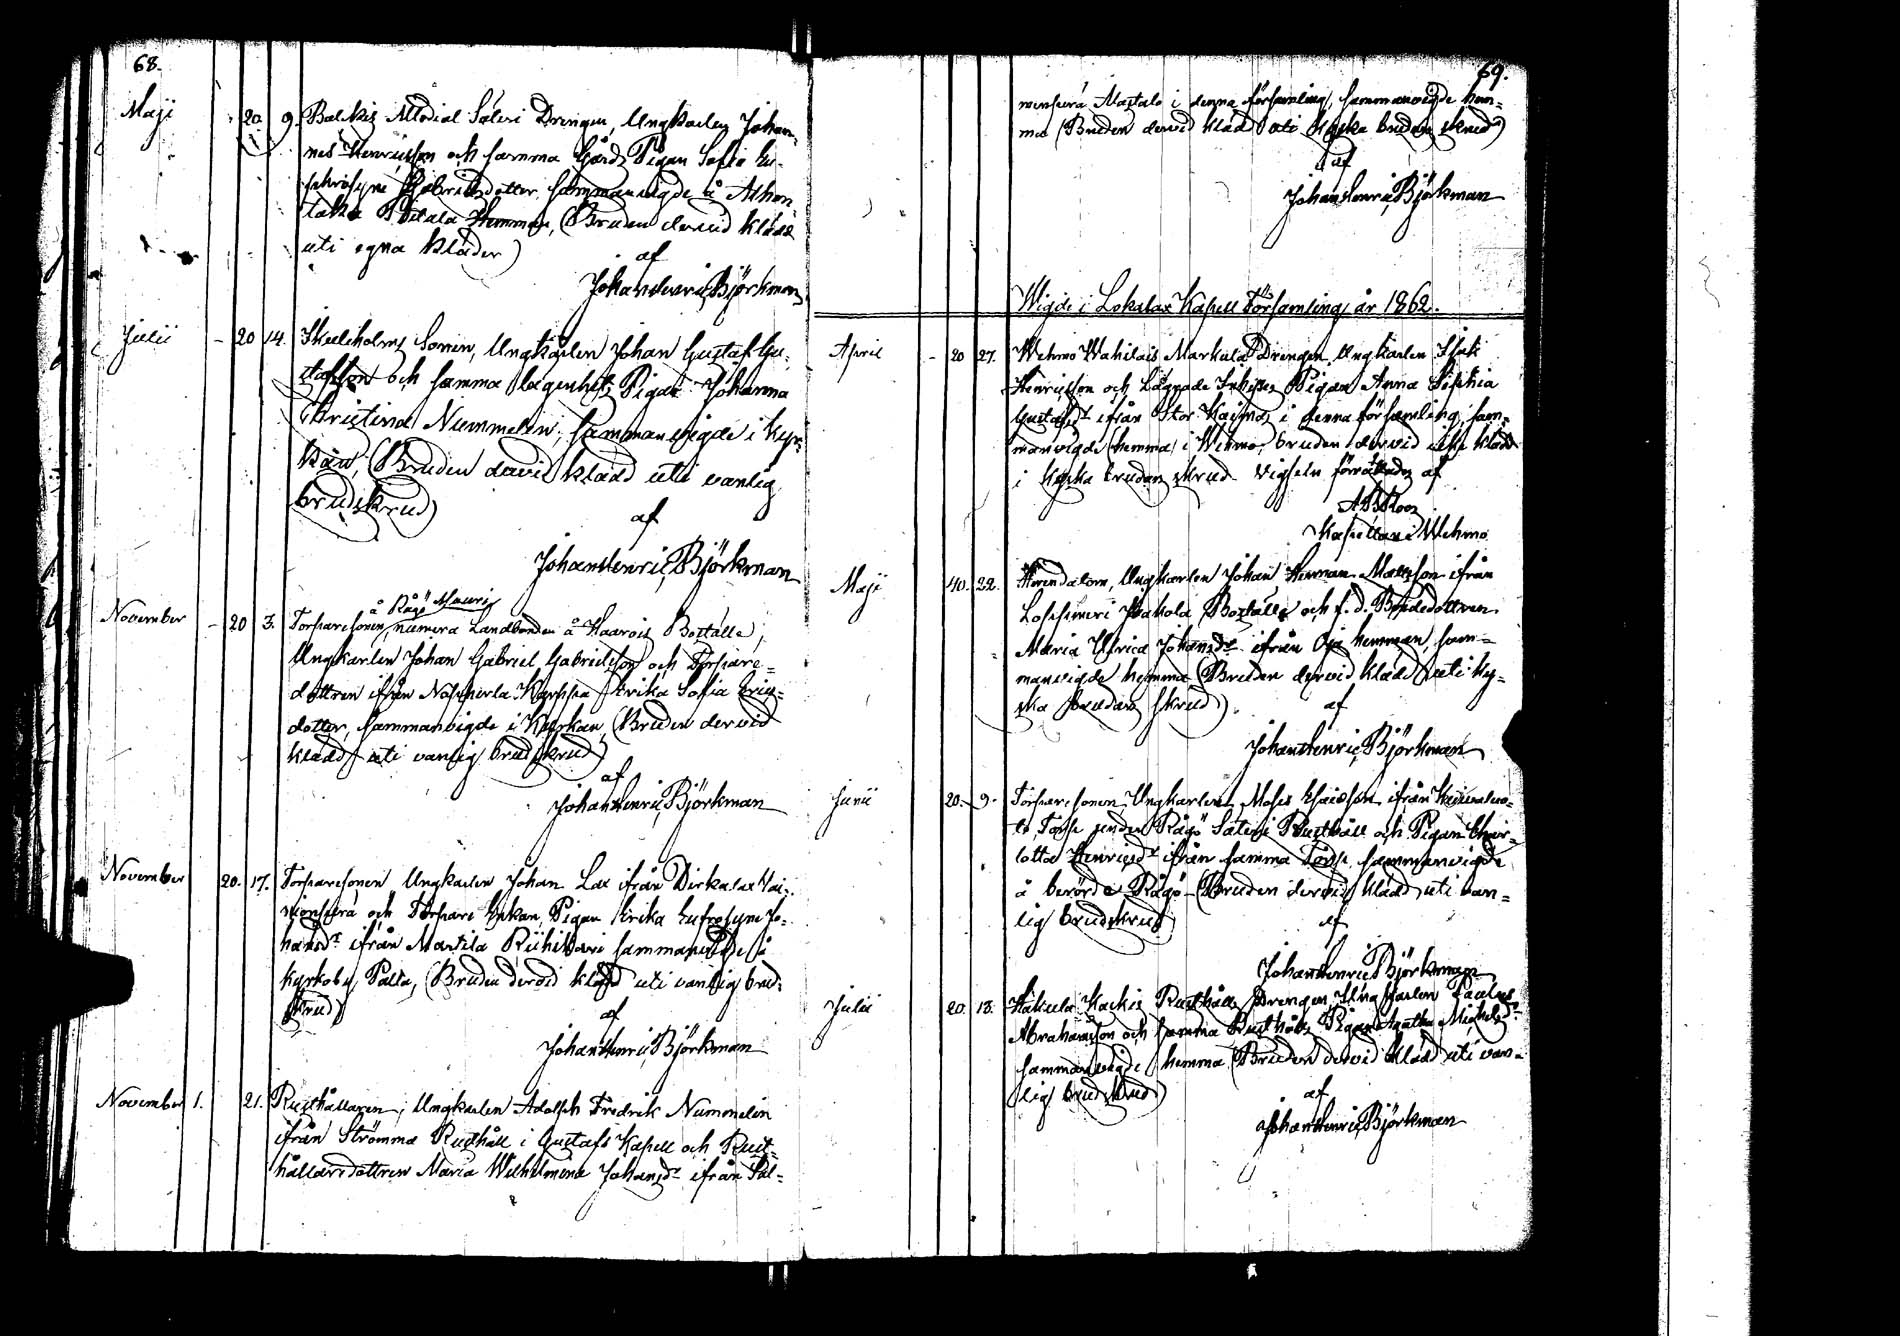 68.
Maji 20. 9. Balkis Allodial Säteri Drengen, Ungkarlen Johan-
nes Henricsson och samma Gårds Pigan Sofia Eu-
phrosyne Gabrielsdotter sammanvigde å
Hemman, (Bruden dervid klädd
uti egna kläder)
af
Johan Henric Björkman
Julii - 20 14. Sonen, Ungkarlen Johan Gustaf Gu-
stafsson och samma lägenhets Pigan Johanna
Christina Nummelin, sammanvigde i Kyr-
kan, (Bruden dervid klädd uti vanlig
brudskrud)
af
Johan Henric Björkman
å Rågö Mauris
November - 20 3. Torparesonen, numera Landbonden å Kaarois Boställe,
Ungkarlen Johan Gabriel Gabrielsson och Torpare-
dottren ifrån Erika Sofia Erics-
dotter, sammanvigde i Kyrkan, (Bruden dervid
klädd uti vanlig brudskrud)
af
Johan Henric Björkman
November 20. 17. Torparesonen Ungkarlen Johan ifrån
och Torpare Enkan, Pigan Erika Eufrosyne Jo-
hansdr ifrån Martila sammanvigde å
Kyrkoby Palta, (Bruden dervid klädd uti vanlig brud-
skrud)
af
Johan Henric Björkman
November 1. 21. Rusthållaren, Ungkarlen Adolph Fredrik Nummelin
ifrån Strömma Rusthåll i Gustafs Kapell och Rust-
hållaredottren Maria Wilhelmina Johansdr ifrån Sal-
69.
i denna församling, sammanvigde hem-
ma (Bruden dervid klädd uti kyska brudars skrud)
af
Johan Henric Björkman
Wigde i Lokalax Kapell Församling år 1862.
April - 20 27. Wehmo Wahilais Markula Drengen Ungkarlen Isak
Henricsson och Pigan Anna Sophia
Gustafsdr ifrån i denna församling, sam-
manvigde (hemma) i Wehmo, bruden dervid icke klädd
i kyska brudars skrud. Vigseln förrättades af
Kapellan i Wehmo
Maji 40. 22. Ungkarlen Johan Herman Mattsson ifrån
Boställe och f. d. Bondedottren
Maria Ulrica Johansdr ifrån hemman, sam-
manvigde hemma (Bruden dervid klädd uti ky-
ska brudars skrud)
af
Johan Henric Björkman
Junii 20. 9. Torparesonen Ungkarlen Moses Esaiasson ifrån
Torp under Rågö Säteri Rusthåll och Pigan Char-
lotta Henricsdr ifrån samma Torp sammanvigde
å berörde Rågö (Bruden dervid klädd uti van-
lig brudskrud)
af
Johan Henric Björkman
Julii 20. 13. Rusthålls Drengen Ungkarlen
Abrahamsson och samma Rusthålls Pigan Agatha Michelsdr
sammanvigde hemma (Bruden dervid klädd uti van-
lig brudskrud)
af
Johan Henric Björkman